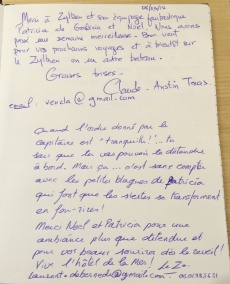 Merci à Zylkan et son équipage fantastique
Patricia de Galicia et Noël Nous avons
passé une semaine merveilleuse. Bon vent
pour vos prochains voyages et à bientôt sur
le Zylkan ou un autre bateau.
Grosses bises.
Claude - Austin Texas
email: vencla@gmail.com
Quand l'ordre donné par le
capitaine est "tranquille!"... tu
sais que tu vas pouvoir te détendre
à bord. Mais ça... c'est sans compter
avec les petites blagues de Patricia
qui font que les siestes se transforment
en fou-rires!
Merci Noel et Patricia pour une
ambiance plus que détendue et
pour vos beaux sourires dès le réveil!
Vive l'hôtel de la Mer!
laurent.debernede@gmail.com